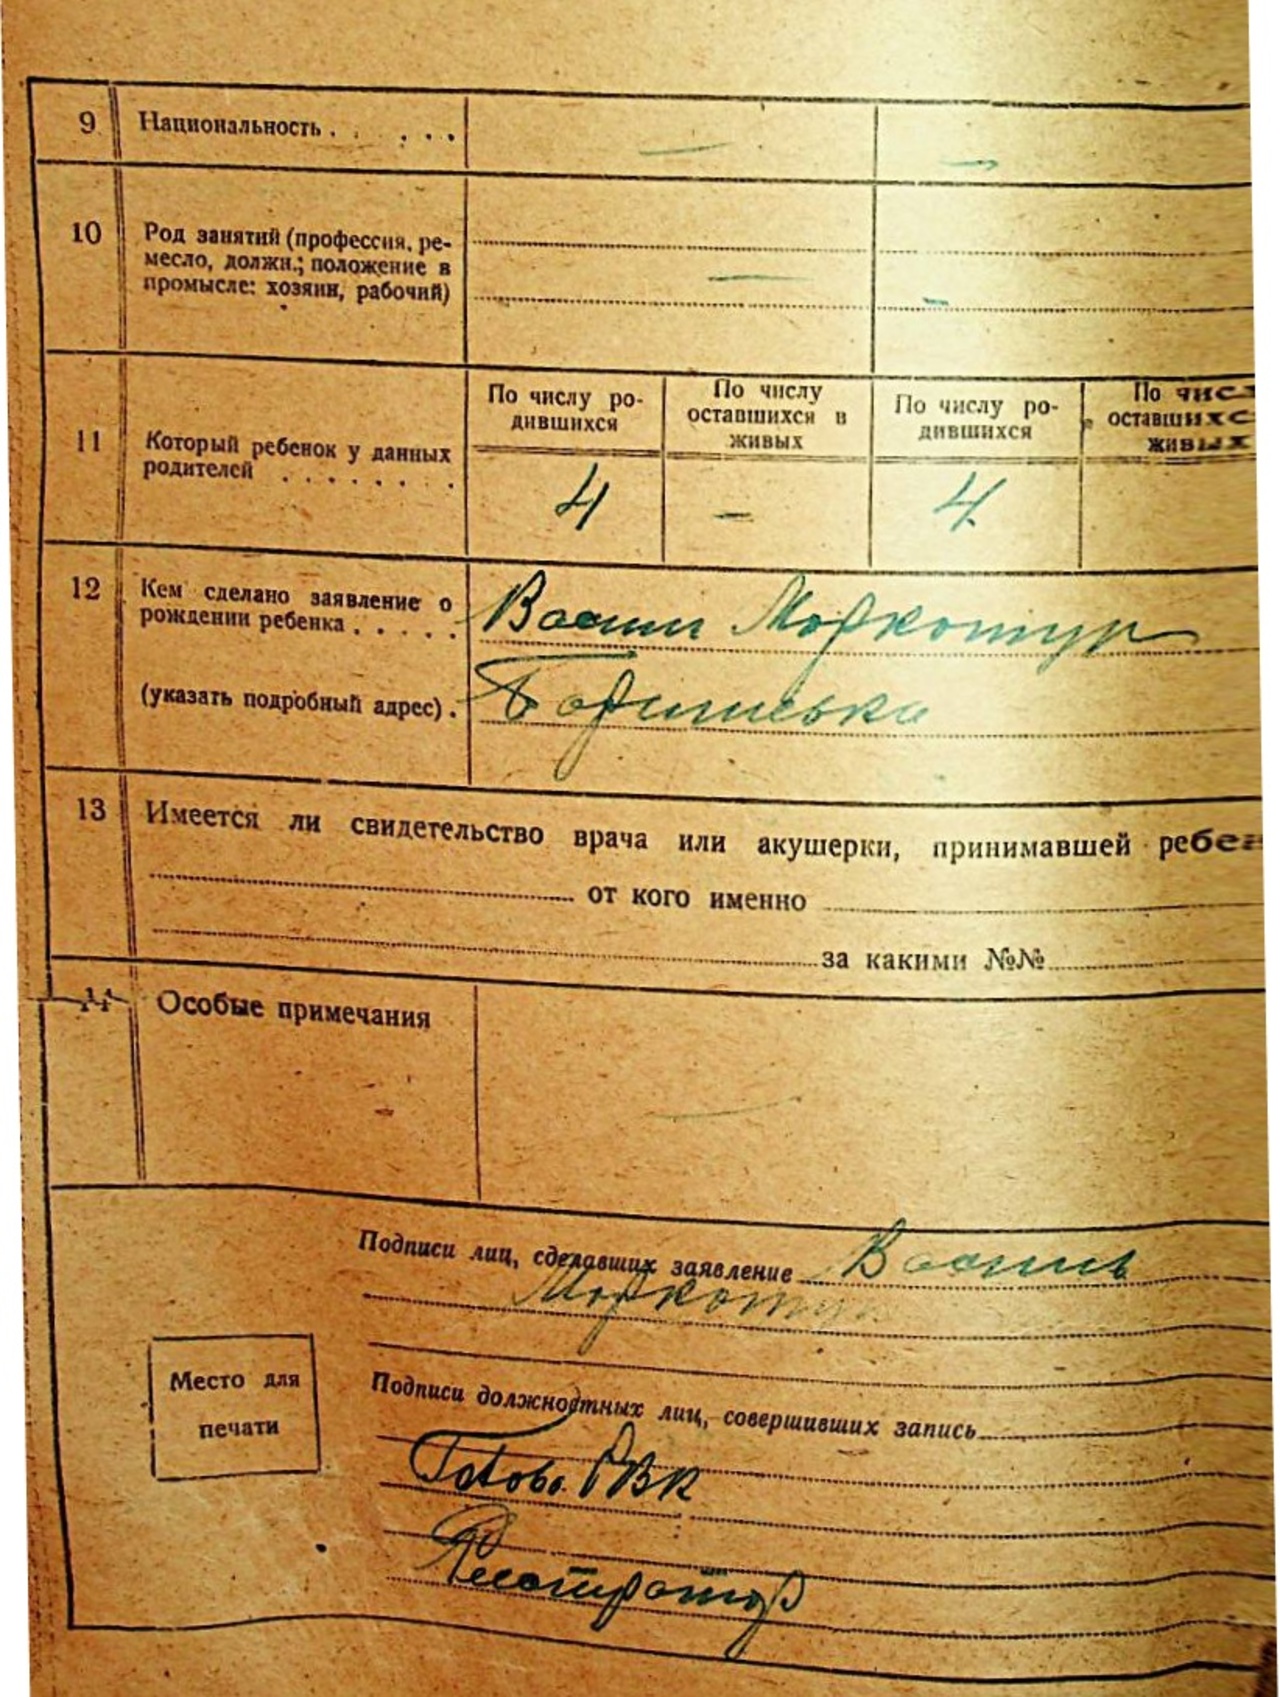 9 Национальность . . . . .
—
—
10 Род занятий (профессия, ре-
месло, должн.; положение в
промысле: хозяин, рабочий)
—
—
11 Который ребенок у данных
родителей . . . . . . . .
По числу ро-
дившихся
По числу
оставшихся в
живых
По числу ро-
дившихся
По чис
оставшихс
живых
4 — 4
12 Кем сделано заявление о
рождении ребенка . . . . .
(указать подробный адрес) .
Моркотун
13 Имеется ли свидетельство врача или акушерки, принимавшей ребен
от кого именно
за какими №№
14 Особые примечания
—
Подписи лиц, сделавших заявление Василь
Моркотун
Место для
печати
Подписи должностных лиц, совершивших запись
РВК